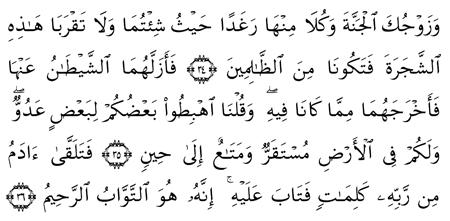 وَزَوْجُكَ ٱلْجَنَّةَ وَكُلَا مِنْهَا رَغَدًا حَيْثُ شِئْتُمَا وَلَا تَقْرَبَا هَٰذِهِ
ٱلشَّجَرَةَ فَتَكُونَا مِنَ ٱلظَّٰلِمِينَ ﴿٣٤﴾ فَأَزَلَّهُمَا ٱلشَّيْطَٰنُ عَنْهَا
فَأَخْرَجَهُمَا مِمَّا كَانَا فِيهِ ۖ وَقُلْنَا ٱهْبِطُوا۟ بَعْضُكُمْ لِبَعْضٍ عَدُوٌّ ۖ
وَلَكُمْ فِى ٱلْأَرْضِ مُسْتَقَرٌّ وَمَتَٰعٌ إِلَىٰ حِينٍ ﴿٣٥﴾ فَتَلَقَّىٰٓ ءَادَمُ
مِن رَّبِّهِۦ كَلِمَٰتٍ فَتَابَ عَلَيْهِ ۚ إِنَّهُۥ هُوَ ٱلتَّوَّابُ ٱلرَّحِيمُ ﴿٣٦﴾